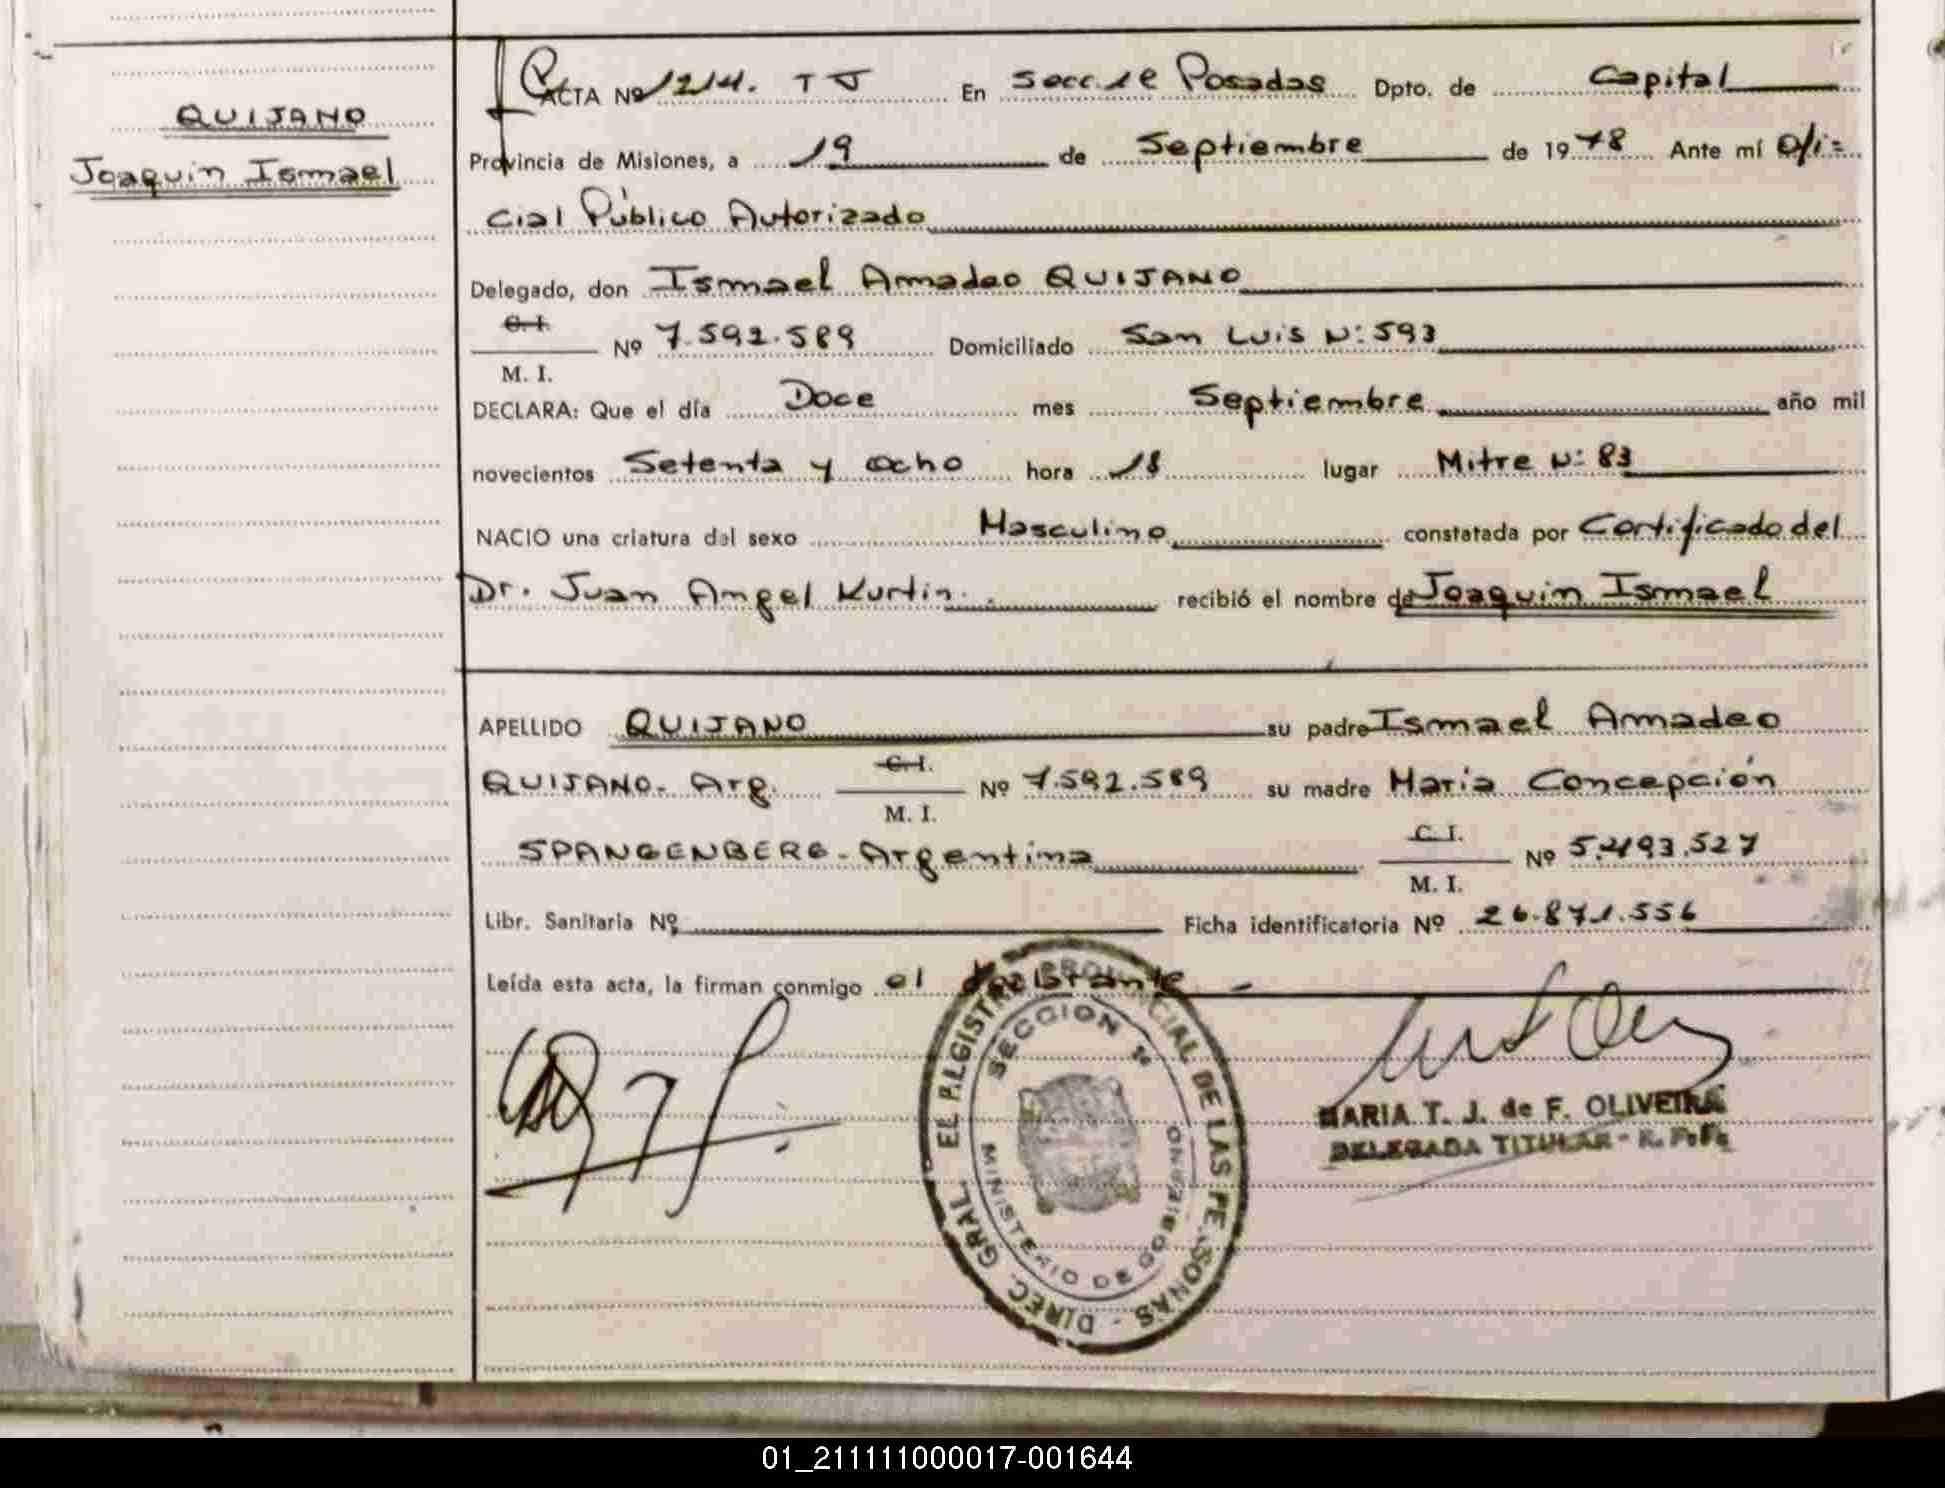 QUIJANO
Joaquin Ismael
ACTA Nº 1214. TJ En Secc. 1e Posadas Dpto. de Capital
Provincia de Misiones, a 19 de Septiembre de 1978 Ante mí Ofi=
cial Público Autorizado
Delegado, don Ismael Amadeo QUIJANO
C. I.
M. I.
Nº 7.592.589 Domiciliado San Luis N: 593
DECLARA: Que el día Doce mes Septiembre año mil
novecientos Setenta y ocho hora 18 lugar Mitre N: 83
NACIO una criatura del sexo Masculino constatada por Certificado del
Dr. Juan Angel Kurtin. recibió el nombre de Joaquin Ismael
APELLIDO QUIJANO su padre Ismael Amadeo
QUIJANO- Arg. C. I.
M. I.
Nº 7.592.589 su madre Maria Concepción
SPANGENBERG- Argentina C. I.
M. I.
Nº 5.493.527
Libr. Sanitaria Nº Ficha identificatoria Nº 26.871.556
Leída esta acta, la firman conmigo el declarante -
DIREC. GRAL. DEL REGISTRO PROVINCIAL DE LAS PERSONAS -
SECCION 1e
MINISTERIO DE GOBIERNO
MARIA T. J. de F. OLIVEIRA
DELEGADA TITULAR - R. P. Ps
01_211111000017-001644